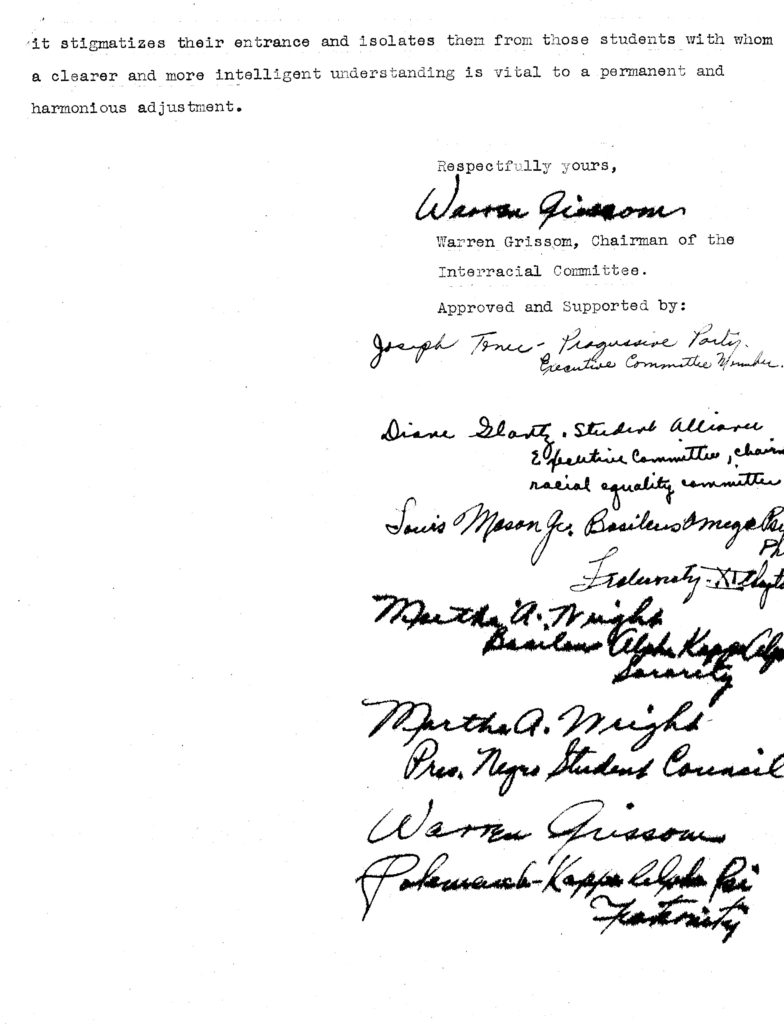 it stigmatizes their entrance and isolates them from those students with whom
a clearer and more intelligent understanding is vital to a permanent and
harmonious adjustment.
Respectfully yours,
Warren Grissom
Warren Grissom, Chairman of the
Interracial Committee.
Approved and Supported by:
Joseph - Progressive Party.
Executive Committee Member.
Diane Glantz. Student Alliance
Executive Committee, chairm
racial equality committee
Louis Mason Jr. Basileus Omega Psi
Ph
Fraternity - XI
Martha A. Wright
Basileus Alpha Kappa Alp
Sorority
Martha A. Wright
Pres. Negro Student Council
Warren Grissom
Polemarch - Kappa Alpha Psi
Fraternity